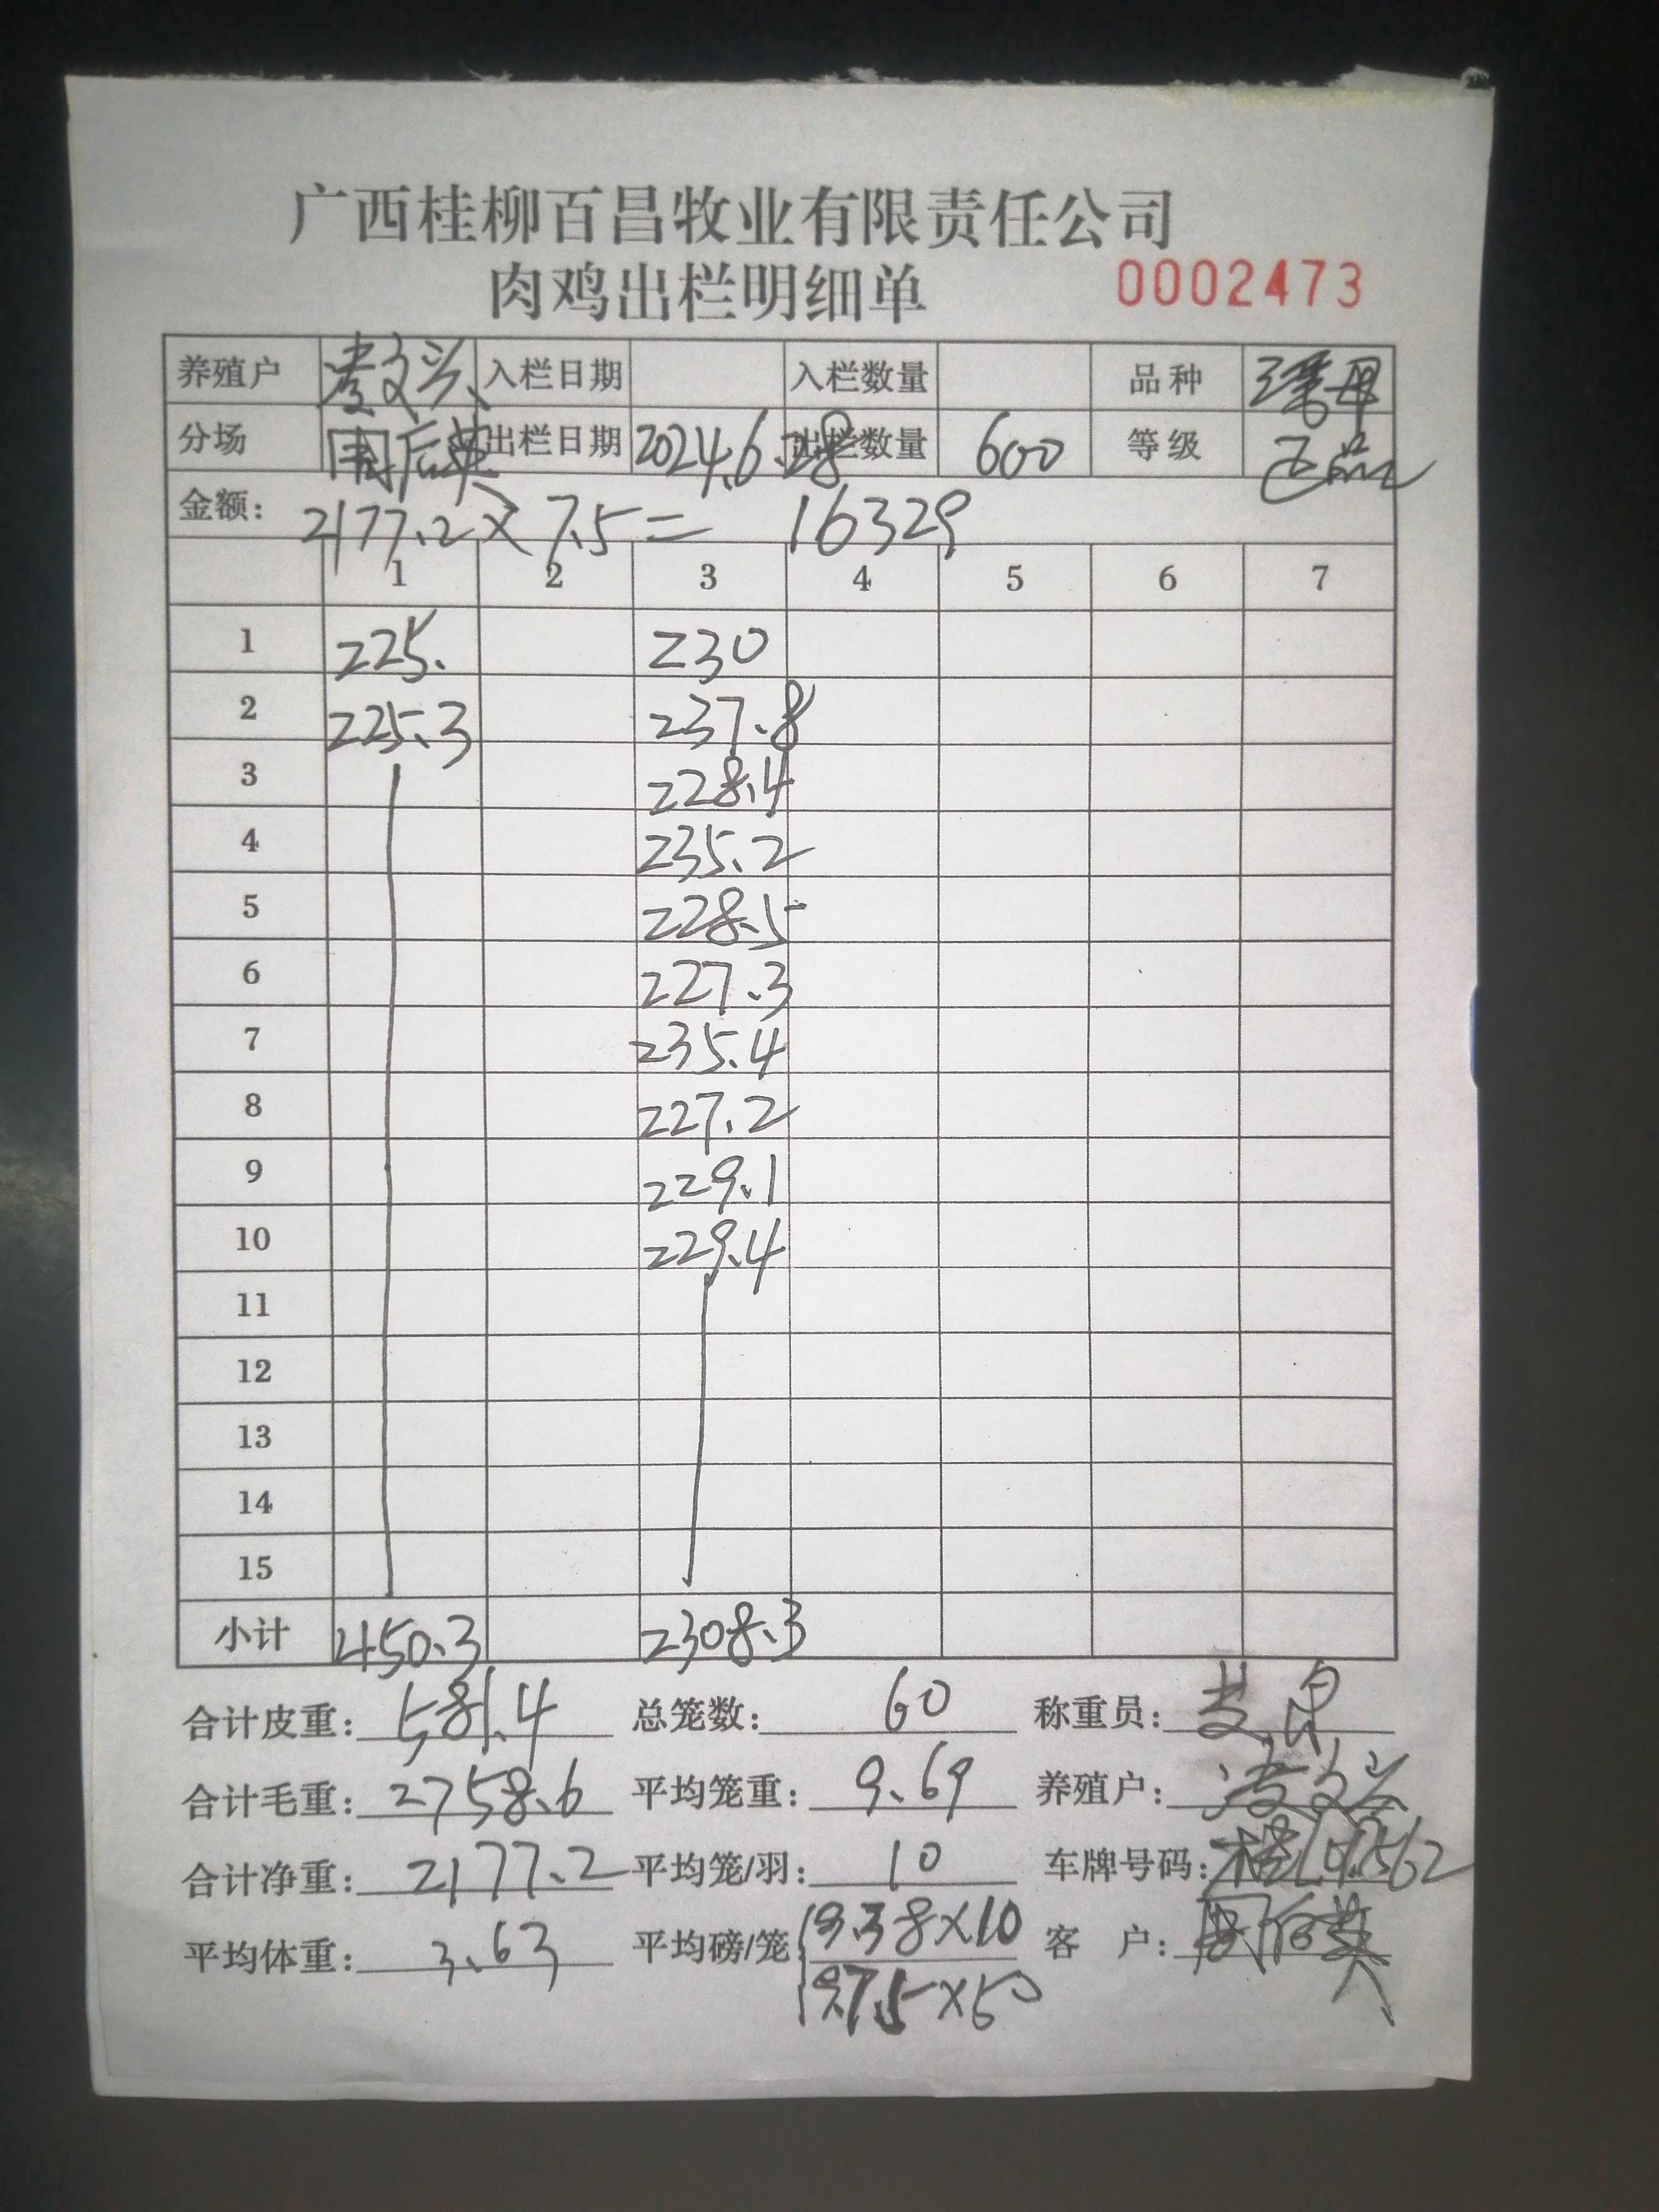 广西桂柳百昌牧业有限责任公司
肉鸡出栏明细单 0002473
养殖户 文兴 入栏日期 入栏数量 品种
分场 周后英 出栏日期 2024.6.28 出栏数量 600 等级 正品
金额: 2177.2×7.5= 16329
1 2 3 4 5 6 7
1 225. 230
2 225.3 237.8
3 228.4
4 235.2
5 228.5
6 227.3
7 235.4
8 227.2
9 229.1
10 229.4
11
12
13
14
15
小计 450.3 2308.3
合计皮重: 581.4 总笼数: 60 称重员:
合计毛重: 2758.6 平均笼重: 9.69 养殖户: 文兴
合计净重: 2177.2 平均笼/羽: 10 车牌号码:
平均体重: 3.63 平均磅/笼: ×10 客 户: 周后英
×50